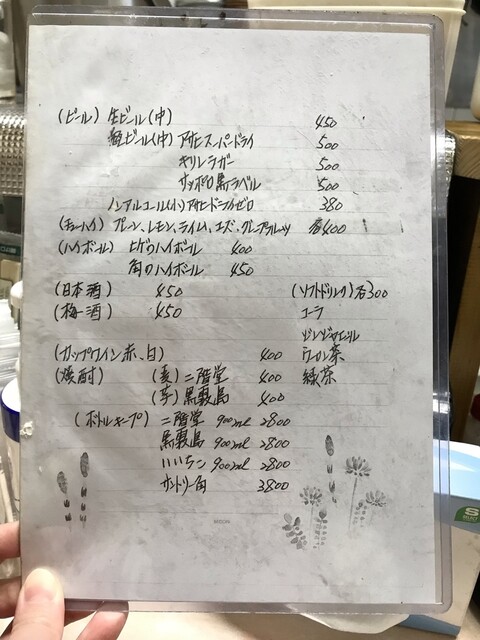 (ビール) 生ビール(中) 450
瓶ビール(中) アサヒスーパードライ 500
キリンラガー 500
サッポロ黒ラベル 500
ノンアルコール(小) アサヒドライゼロ 380
(チューハイ) プレーン、レモン、ライム、ユズ、グレープフルーツ 各400
(ハイボール) ヒゲのハイボール 400
角のハイボール 450
(日本酒) 450
(梅酒) 450
(ソフトドリンク) 各300
コーラ
ジンジャエール
ウーロン茶
緑茶
(カップワイン赤、白) 400
(焼酎) (麦) 二階堂 400
(芋) 黒霧島 400
(ボトルキープ) 二階堂 900ml 2800
黒霧島 900ml 2800
いいちこ 900ml 2800
サントリー角 3800